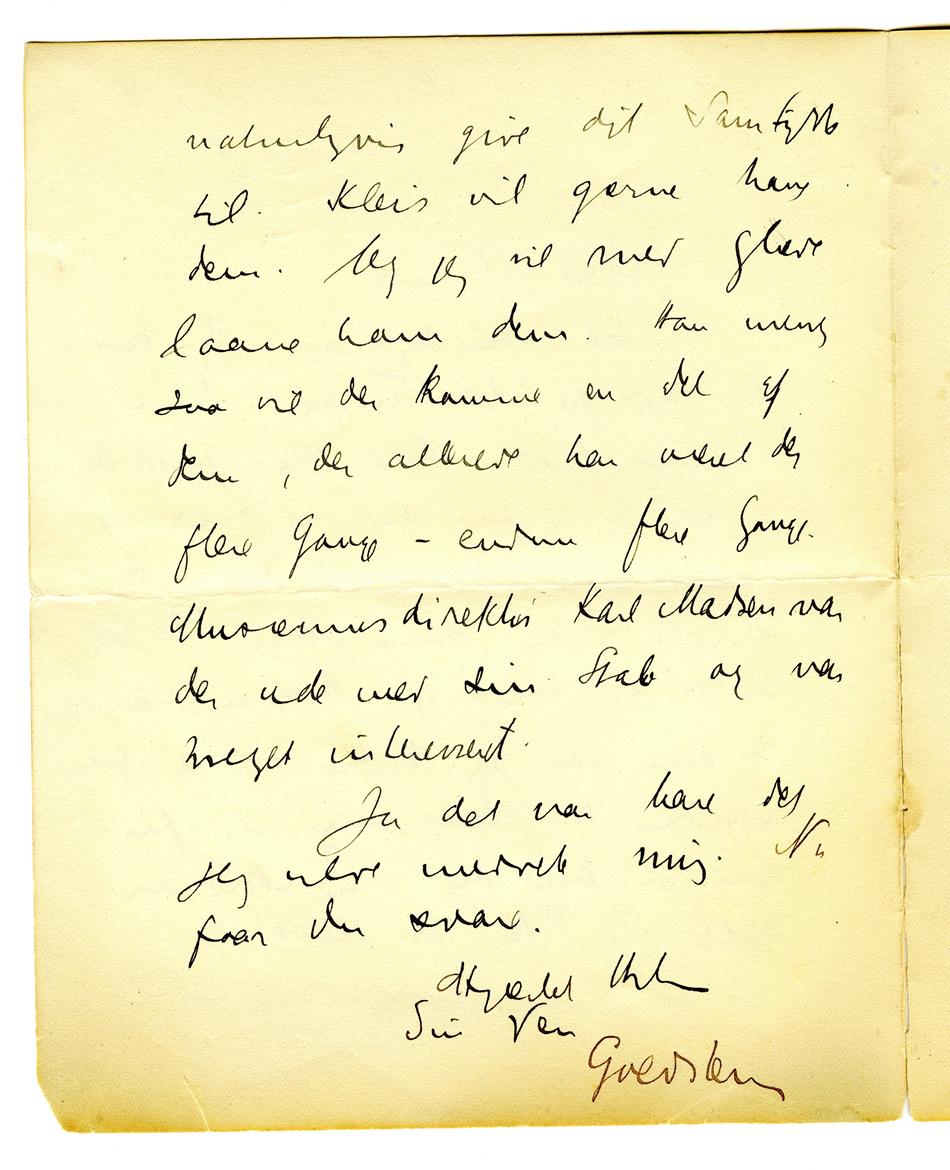 naturligvis give dit Samtykke
til. Kleis vil gerne have
dem. Og jeg vil med Glæde
laane ham dem. Han mener
saa vil der komme en Del af
dem, der allerede har været der
flere Gange – endnu flere Gange.
Musæumsdirektør Karl Madsen var
der ude med sin Stab og var
meget interesseret.
Ja det var bare det
jeg vilde meddele mig. Nu
faar du svare.
Hjertelig Hilsen
Din Ven